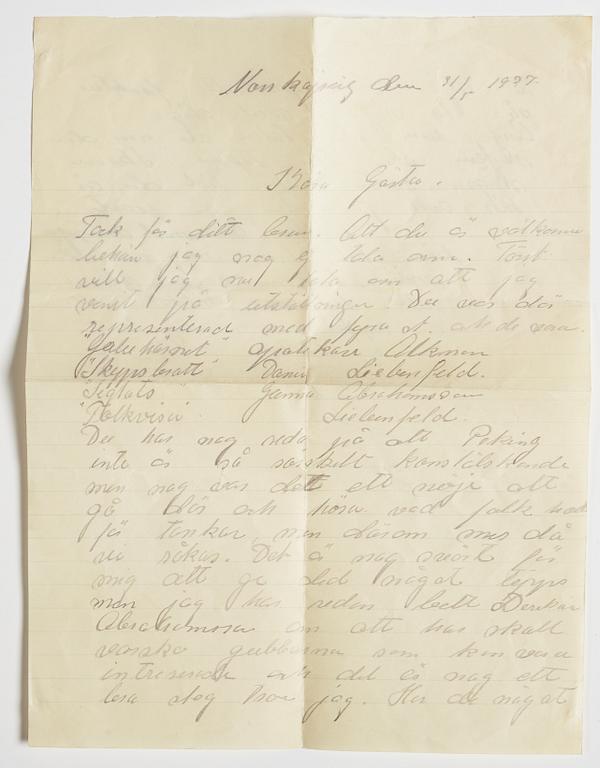 Norrköping den 31/5 1937.
Kära Gösta.
Tack för ditt brev. Att du är välkommen
behöver jag nog ej tala om. Först
vill jag nu tala om att jag
varit på utställningen. Du var där
representerad med fyra st. och de voro.
"Gatehörnet" apotekare Alkman
"Skeppsbrott" Liebenfeld.
"Seglats" Abrahamsson
"Folkvisa" Liebenfeld.
Du har nog reda på att Peking
inte är så särskilt konstälskande
men nog var det ett nöje att
gå där och höra vad folk
för tankar, men
vi såkas. Det är nog svårt för
mig att ge dig något tipps
men jag har redan bett Direktör
Abrahamsson om att han skall
varsko gubbarna som kan vara
intreserade och det är nog ett
bra steg tror jag. Har du något